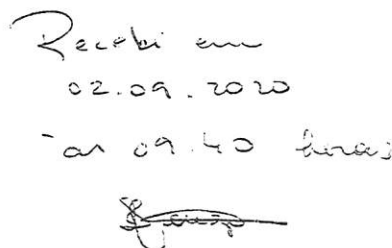 Recebi em
02.09.2020
às 09.40 horas